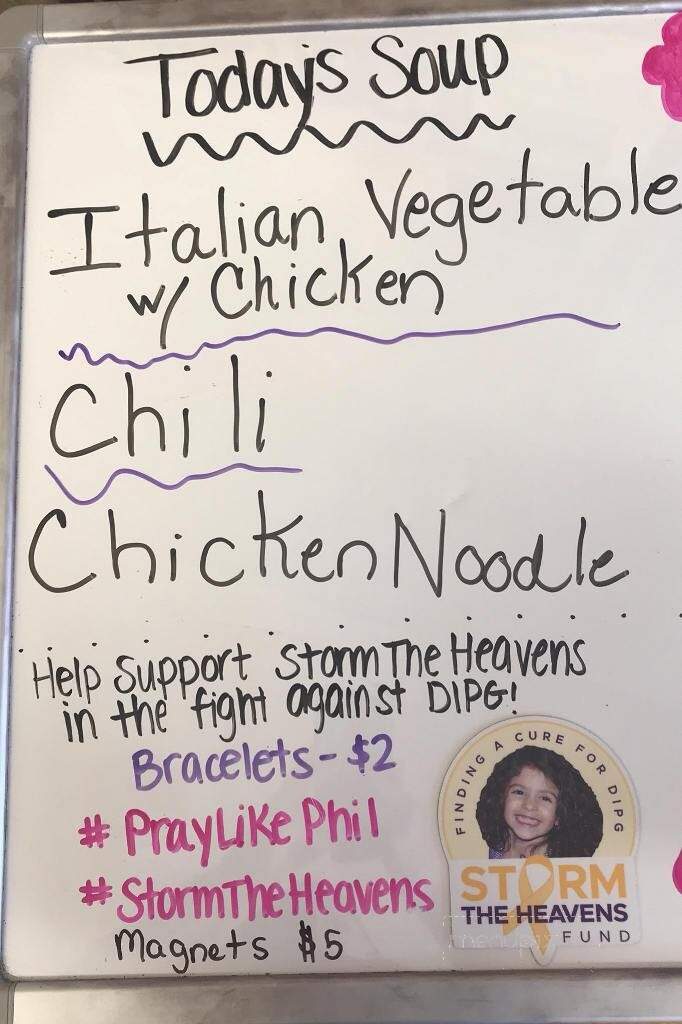 Today's Soup
Italian Vegetable
w/ Chicken
Chili
Chicken Noodle
Help Support Storm The Heavens
in the fight against DIPG!
Bracelets - $2
# PrayLike Phil
# StormTheHeavens
Magnets $5
FINDING A CURE FOR DIPG
STORM
THE HEAVENS
FUND